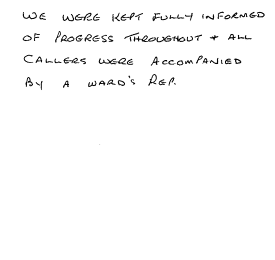 WE WERE KEPT FULLY INFORMED
OF PROGRESS THROUGHOUT + ALL
CALLERS WERE ACCOMPANIED
BY A WARD'S REP.